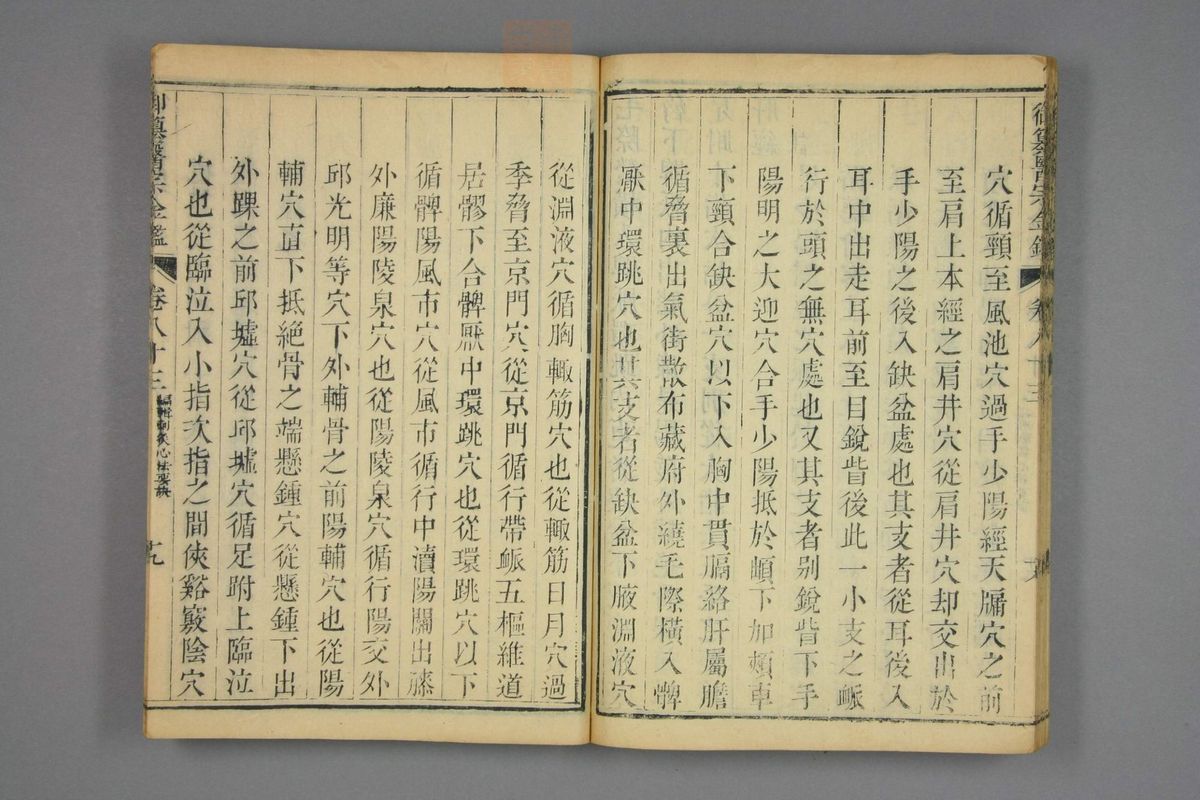 御纂醫宗金鑑 卷八十三
穴循頸至風池穴過手少陽經天牖穴之前
至肩上本經之肩井穴從肩井穴却交出於
手少陽之後入缺盆處也其支者從耳後入
耳中出走耳前至目銳眥後此一小支之脈
行於頭之無穴處也又其支者别銳眥下手
陽明之大迎穴合手少陽抵於䪼下加頰車
下頸合缺盆穴以下入胸中貫膈絡肝屬膽
循脅裏出氣街散布藏府外繞毛際橫入髀
厭中環跳穴也其支者從缺盆下腋淵液穴
從淵液穴循胸輙筋穴也從輙筋日月穴過
季脅至京門穴從京門循行帶脈五樞維道
居髎下合髀厭中環跳穴也從環跳穴以下
循髀陽風市穴從風市循行中瀆陽關出膝
外廉陽陵泉穴也從陽陵泉穴循行陽交外
邱光明等穴下外輔骨之前陽輔穴也從陽
輔穴直下抵絶骨之端懸鍾穴從懸鍾下出
外踝之前邱墟穴從邱墟穴循足跗上臨泣
穴也從臨泣入小指次指之間俠谿竅陰穴
御纂醫宗金鑑 卷八十三 編輯刺灸心法要訣 十九